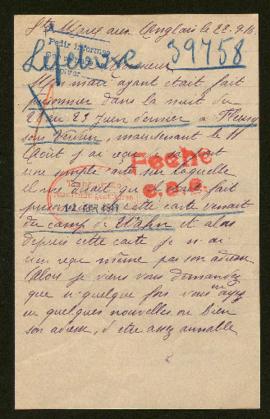 Ste Marie aux Anglais le 22-9-16
Petit Informé
Lefebvre 39758
Monsieur
Mon mari ayant était fait
prisonnier dans la nuit du
au 23 Juin dernier à Fleury
son Verdun, maintenant le 11
Août j'ai
une simple sur laquelle
il me disait qu'
Fiche
cette carte venait
du camp de Wahn et alors
depuis cette carte je n'ai
rien reçu même pas son adresse
Alors je viens vous demander
que si quelque fois vous
eu quelques nouvelles ou bien
son adresse, d'être assez aimable